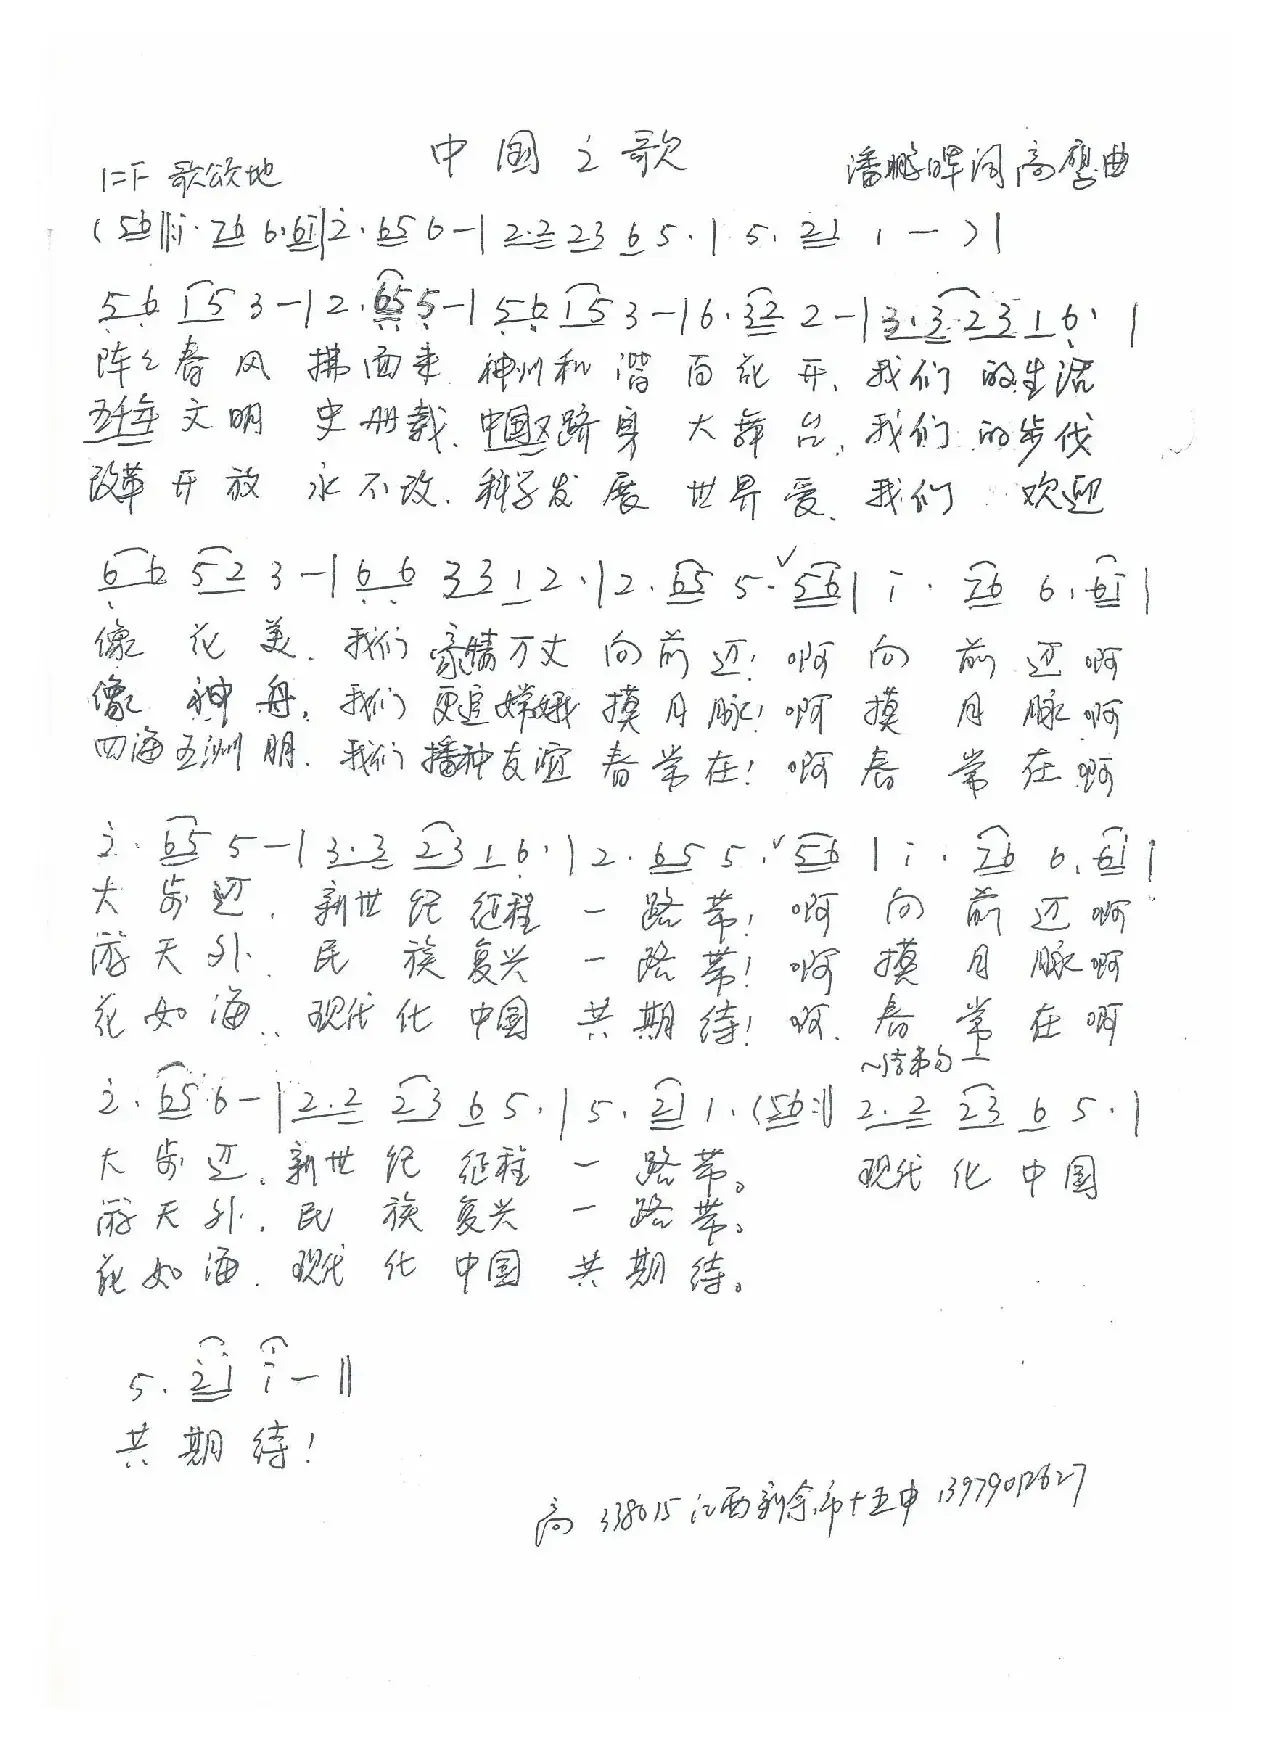 中国之歌
1=F 歌颂地 潘鹏晖词 高鹰曲
(56‖:i· 76 6·6i|2· 65 6-|2·2 23 6 5·|5· 21 1-)|
5 6 15 3-|2· 65 5-|56 15 3-|6· 32 2-|3·3 23 1 6·|
阵々春风 拂面来 神州和谐 百花开，我们的生活
五千年文明 史册载、中国 跻身大舞台，我们的步伐
改革开放 永不改、科学发展 世界爱、我们 欢迎
6 6 52 3-|6 6 33 1 2·|2· 65 5·√56|i· 76 6·6i|
像花美、我们豪情万丈向前迈！啊向前迈啊
像神舟，我们更追嫦娥摸月脉！啊摸月脉啊
四海五洲朋、我们播种友谊春常在！啊春常在啊
2· 65 5-|3·3 23 1 6·|2· 65 5·√56|i· 76 6·6i|
大步迈，新世纪征程一路带！啊向前迈啊
游天外、民族复兴一路带！啊摸月脉啊
花如海、现代化中国共期待！啊、春常在啊
～结束句～
2· 65 6-|2·2 23 6 5·|5· 21 1·(56:‖ 2·2 23 6 5·|
大步迈、新世纪征程一路带。 现代化中国
游天外，民族复兴一路带。
花如海、现代化中国共期待。
5· 21 i-‖
共期待！
高 338015 江西新余市十五中 13979012627